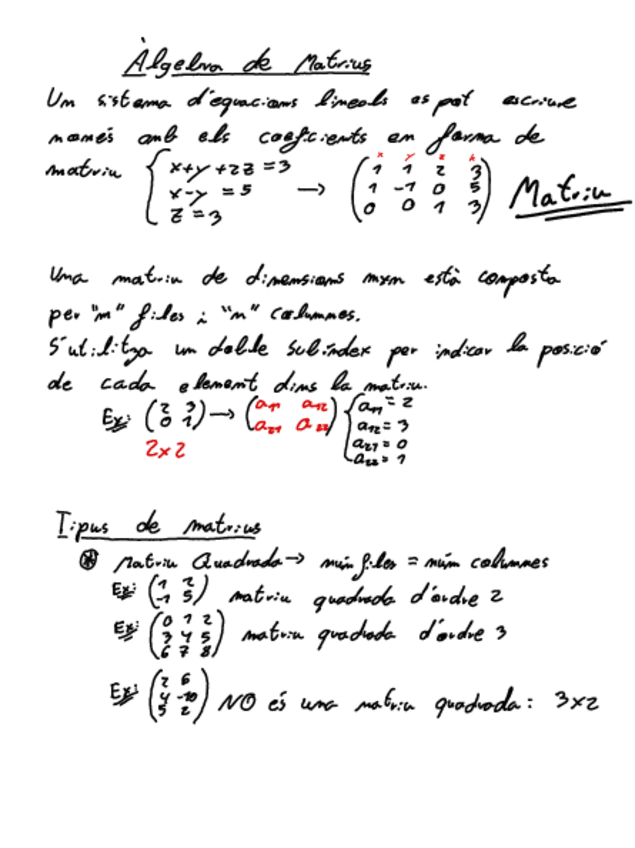 Àlgebra de Matrius
Un sistema d'equacions lineals es pot escriure
només amb els coeficients en forma de
matriu { x+y+2z=3 → ( x y z k
x-y =5 1 1 2 3
z=3 1 -1 0 5
0 0 1 3 ) Matriu
Una matriu de dimensions mxn està composta
per "m" files i "n" columnes.
S'utilitza un doble subíndex per indicar la posició
de cada element dins la matriu.
Ex: (2 3 → (a11 a12 { a11 = 2
0 1) a21 a22) a12 = 3
2x2 a21 = 0
a22 = 1
Tipus de matrius
* Matriu Quadrada → núm files = núm columnes
Ex: (1 2
-1 5) matriu quadrada d'ordre 2
Ex: (0 1 2
3 4 5 matriu quadrada d'ordre 3
6 7 8)
Ex: (2 6
4 -10 NO és una matriu quadrada: 3x2
5 2)